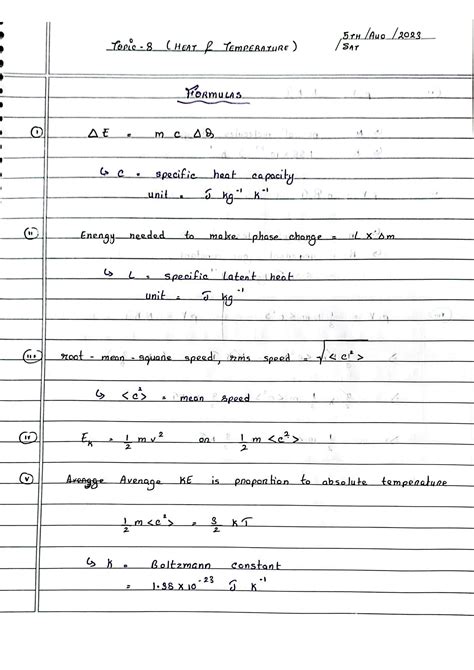 5TH/AUG/2023
TOPIC - 8 (HEAT & TEMPERATURE) /SAT
FORMULAS
(i) ΔE = m c Δθ
↳ c = specific heat capacity
unit = J kg⁻¹ K⁻¹
(ii) Energy needed to make phase change = L × Δm
↳ L = specific latent heat
unit = J kg⁻¹
(iii) root - mean - square speed, rms speed = √<c²>
↳ <c²> = mean speed
(iv) Eₖ = 1/2 m v² or 1/2 m <c²>
(v) Average Average KE is proportion to absolute temperature
1/2 m <c²> = 3/2 kT
↳ k = Boltzmann constant
= 1.38 × 10⁻²³ J K⁻¹